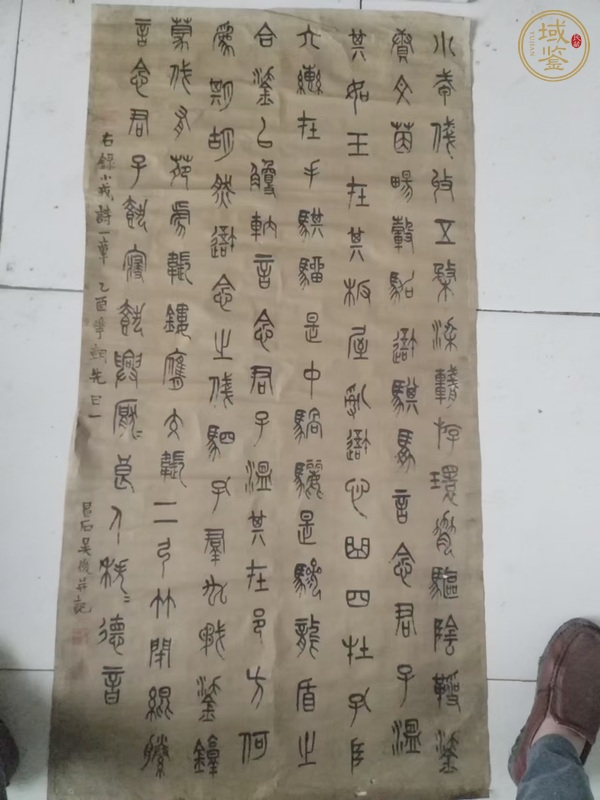 小戎俴收五楘梁輈游環脅驅陰靷鋈
續文茵暢轂駕我騏馵言念君子溫
其如玉在其板屋亂我心曲四牡孔阜
六轡在手騏駵是中騧驪是驂龍盾之
合鋈以觼軜言念君子溫其在邑方何
爲期胡然我念之俴駟孔羣厹矛鋈錞
蒙伐有苑虎韔鏤膺交韔二弓竹閉緄縢
言念君子載寢載興厭〻良人秩〻德音
右錄小戎詩一章 乙酉 先一日
昌石吳俊并記
域鑒